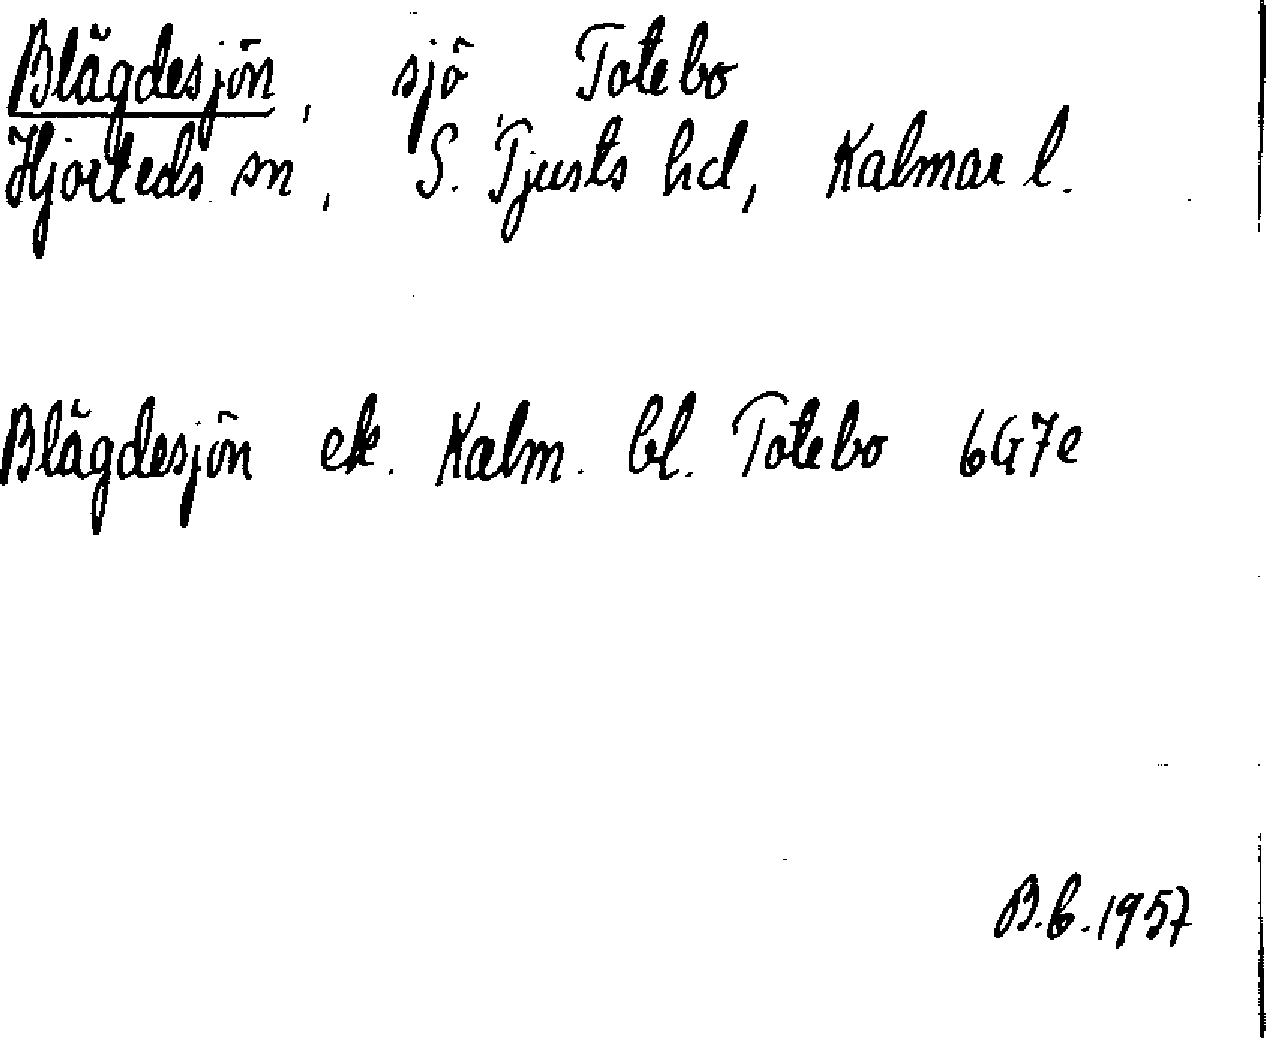 Blägdesjön, sjö, Totebo
Hjorteds sn, S. Tjusts hd, Kalmar l.
Blägdesjön ek. Kalm. bl. Totebo 6G7e
B.b.1957